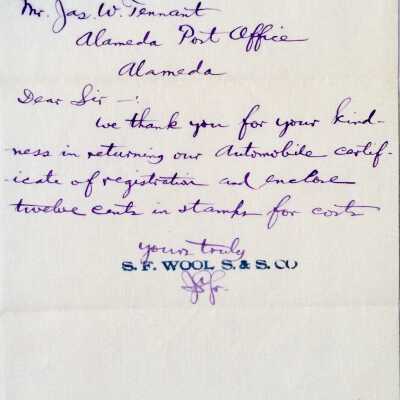 Mr. Jas. W. Tennant
Alameda Post Office
Alameda
Dear Sir —:
We thank you for your kind-
-ness in returning our Automobile certif-
-icate of registration and enclose
twelve cents in stamps for costs
Yours truly
S. F. WOOL S. & S. CO